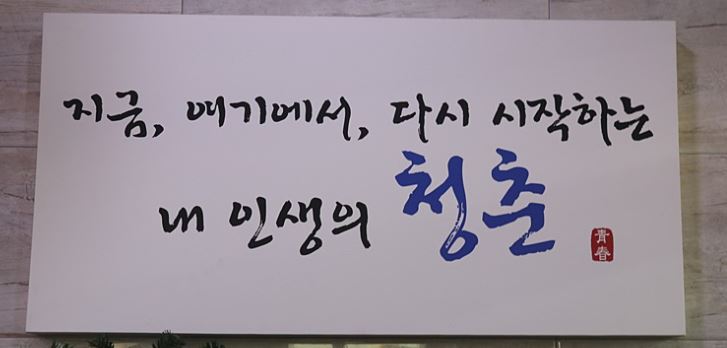 지금, 여기에서, 다시 시작하는
내 인생의 청춘
靑春